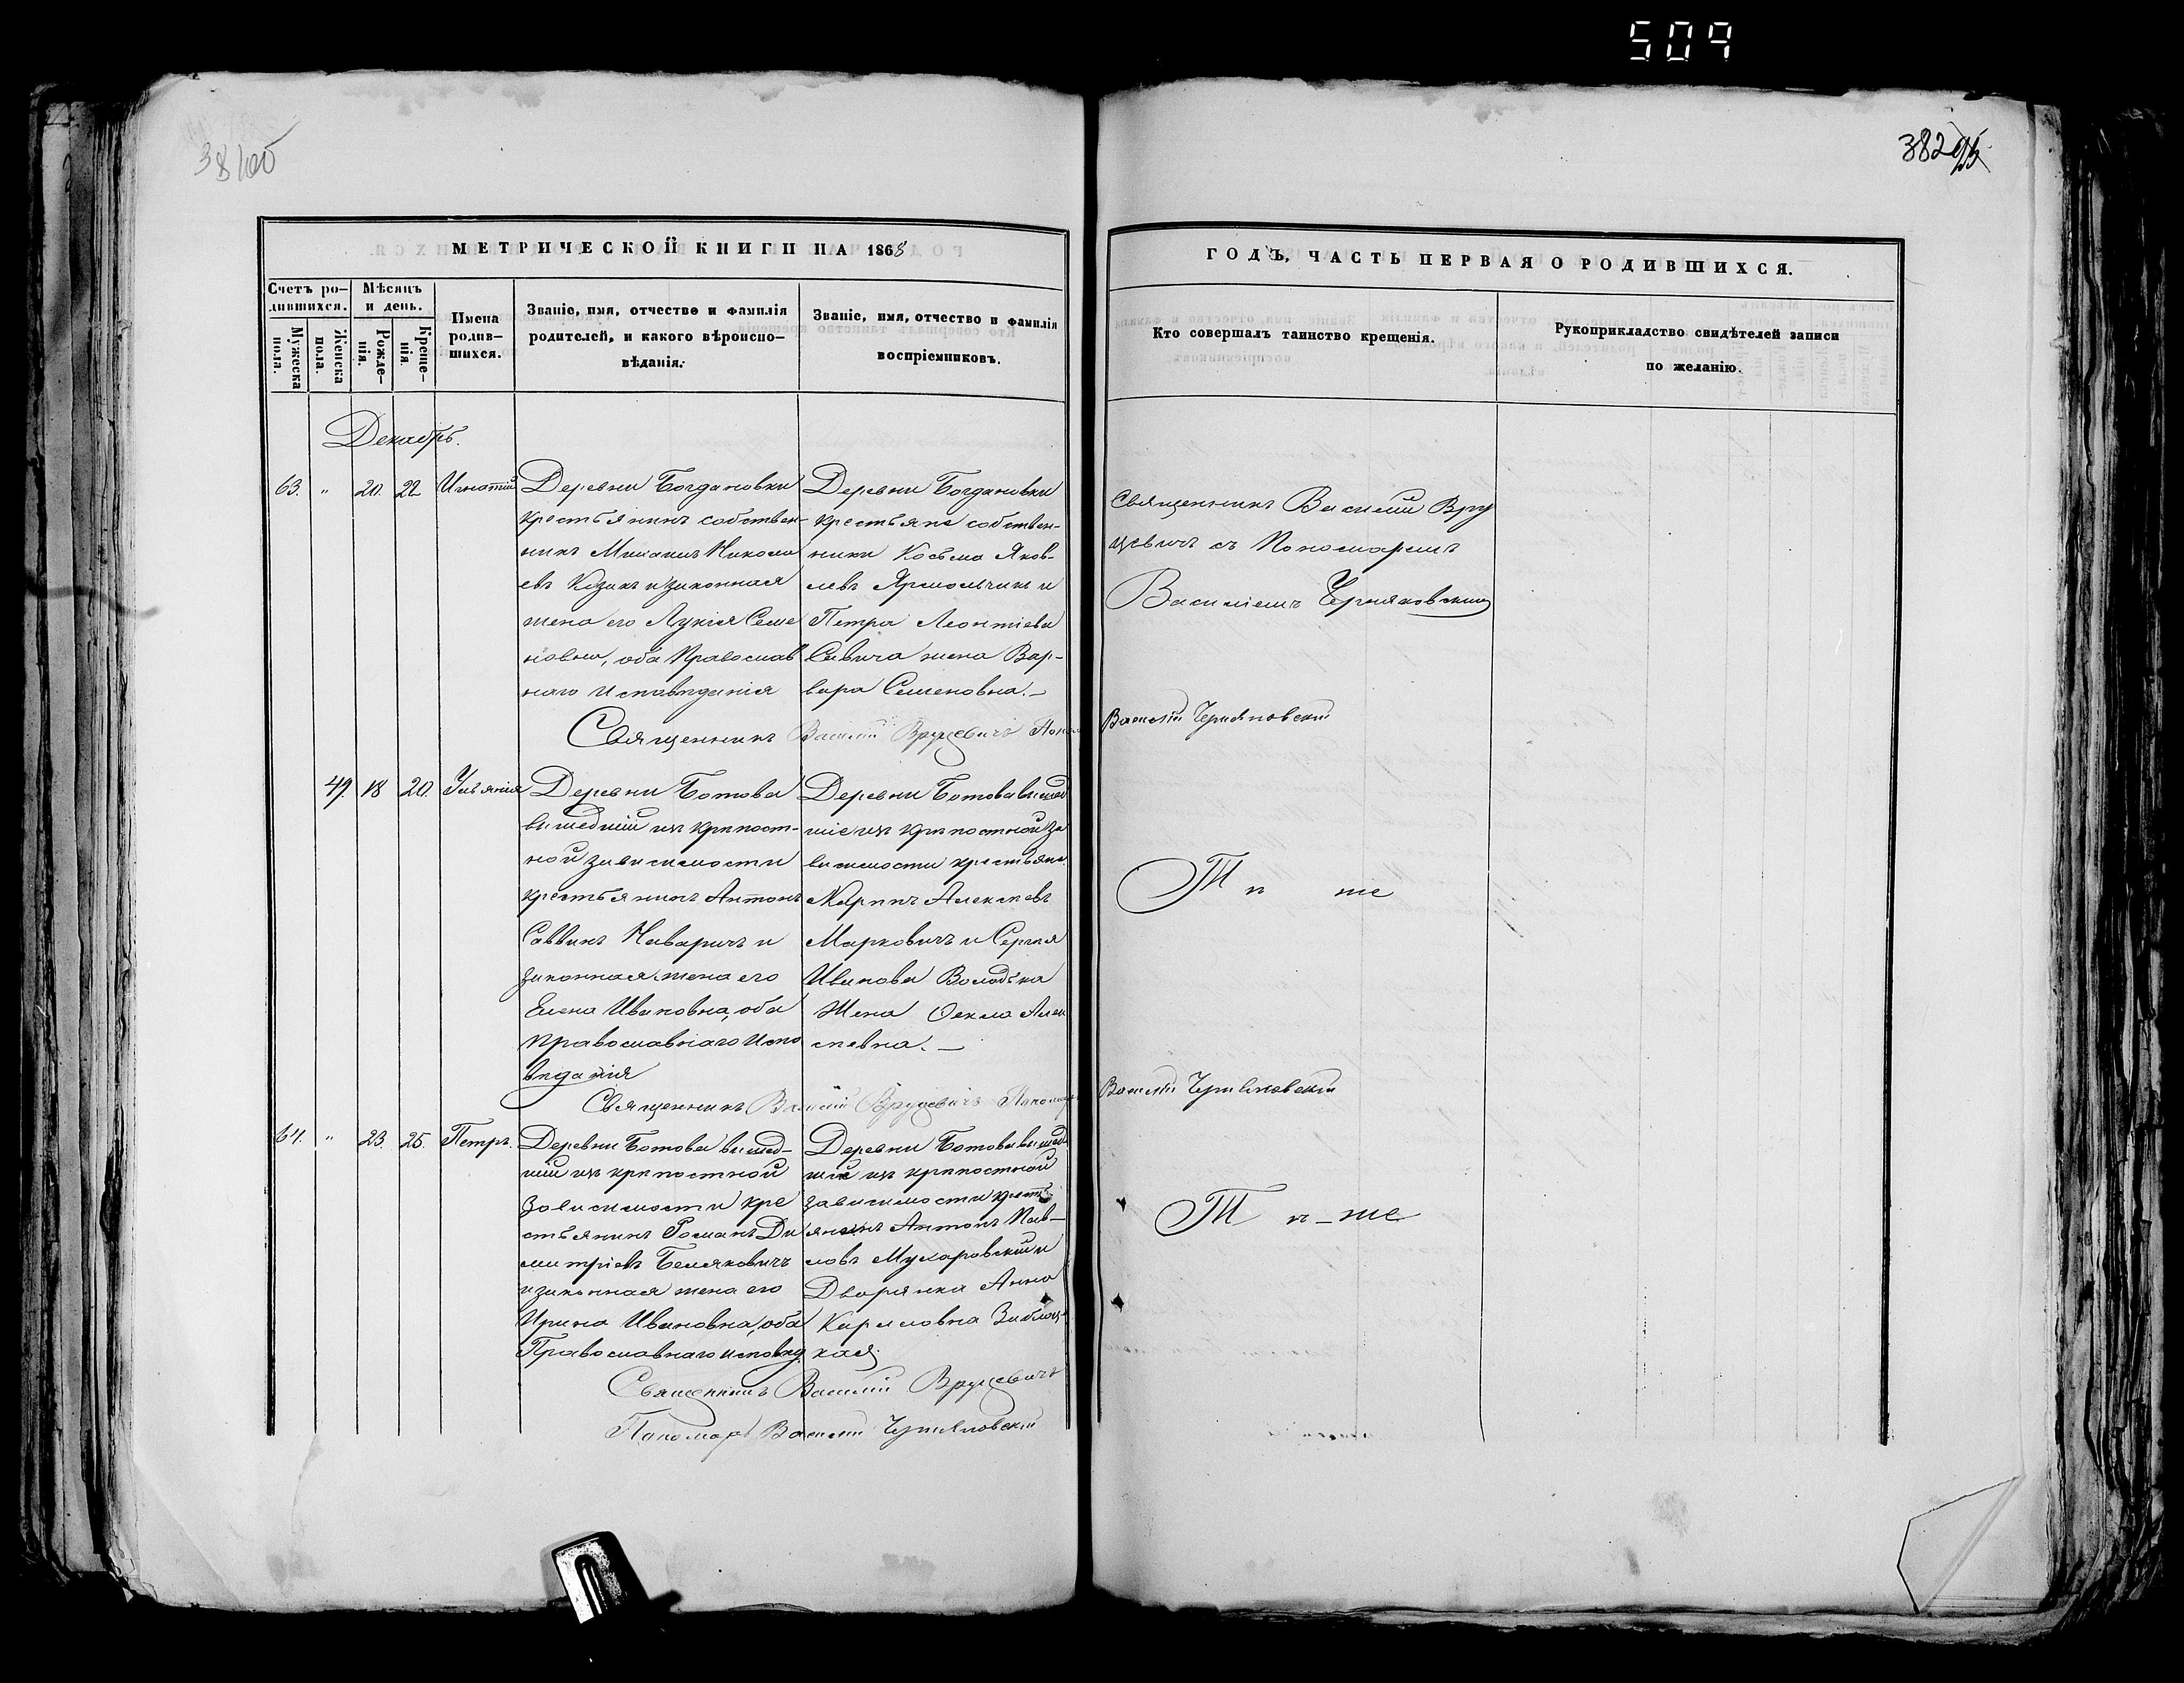 509
382
МЕТРИЧЕСКОЙ КНИГИ НА 1868
ГОДЪ, ЧАСТЬ ПЕРВАЯ О РОДИВШИХСЯ.
Счетъ ро-
дившихся.
Мужеска
пола.
Женска
пола.
Мѣсяцъ
и день.
Рожде-
нія.
Креще-
нія.
Имена
родив-
шихся.
Званіе, имя, отчество и фамилія
родителей, и какого вѣроиспо-
вѣданія.
Званіе, имя, отчество и фамилія
воспріемниковъ.
Кто совершалъ таинство крещенія.
Рукоприкладство свидѣтелей записи
по желанію.
Декабрь.
63. " 20. 22 Игнатій
Деревни Богдановки
крестьянинъ собствен-
никъ Михаилъ Никола
евъ Козикъ и законная
жена его Лукія Семе
новна, оба Православ
наго Исповѣданія
Деревни Богдановки
крестьяне собствен-
ники Косьма Яков-
левъ Ярмольчикъ и
Петра Леонтіева
Савича жена Вар-
вара Семеновна.—
Священникъ Василій Вру
цевичъ съ Пономаремъ
Василіемъ Черняковскимъ
Священникъ Василій Вруцевичъ
Василій Черняковскій
49. 18 20. Ульянія
Деревни Ботова
вышедшій изъ крѣпост-
ной зависимости
крестьянинъ Антонъ
Саввинъ Наваричъ и
законная жена его
Елена Ивановна, оба
Православнаго Испо
вѣданія
Деревни Ботова вышед
шіе изъ крѣпостной за
висимости крестьяне
Карпъ Алексѣевъ
Марковичъ и Сергѣя
Иванова Володька
Жена Ѳекла Алек
сѣевна.—
Тѣ же
Священникъ Василій Вруцевичъ Пономарь
Василій Черняковскій
64. " 23. 25. Петръ.
Деревни Ботова вышед-
шій изъ крѣпостной
зависимости кре
стьянинъ Романъ Ди
митріевъ Беляковичъ
и законная жена его
Ирина Ивановна, оба
Православнаго исповѣд.
Деревни Ботова вышед
шій изъ крѣпостной
зависимости кресть
янинъ Антонъ Пав-
ловъ Мухаровскій и
Дворянка Анна
Кириловна Заблоц-
кая.
Тѣ-же
Священникъ Василій Вруцевичъ
Пономарь Василій Черняковскій